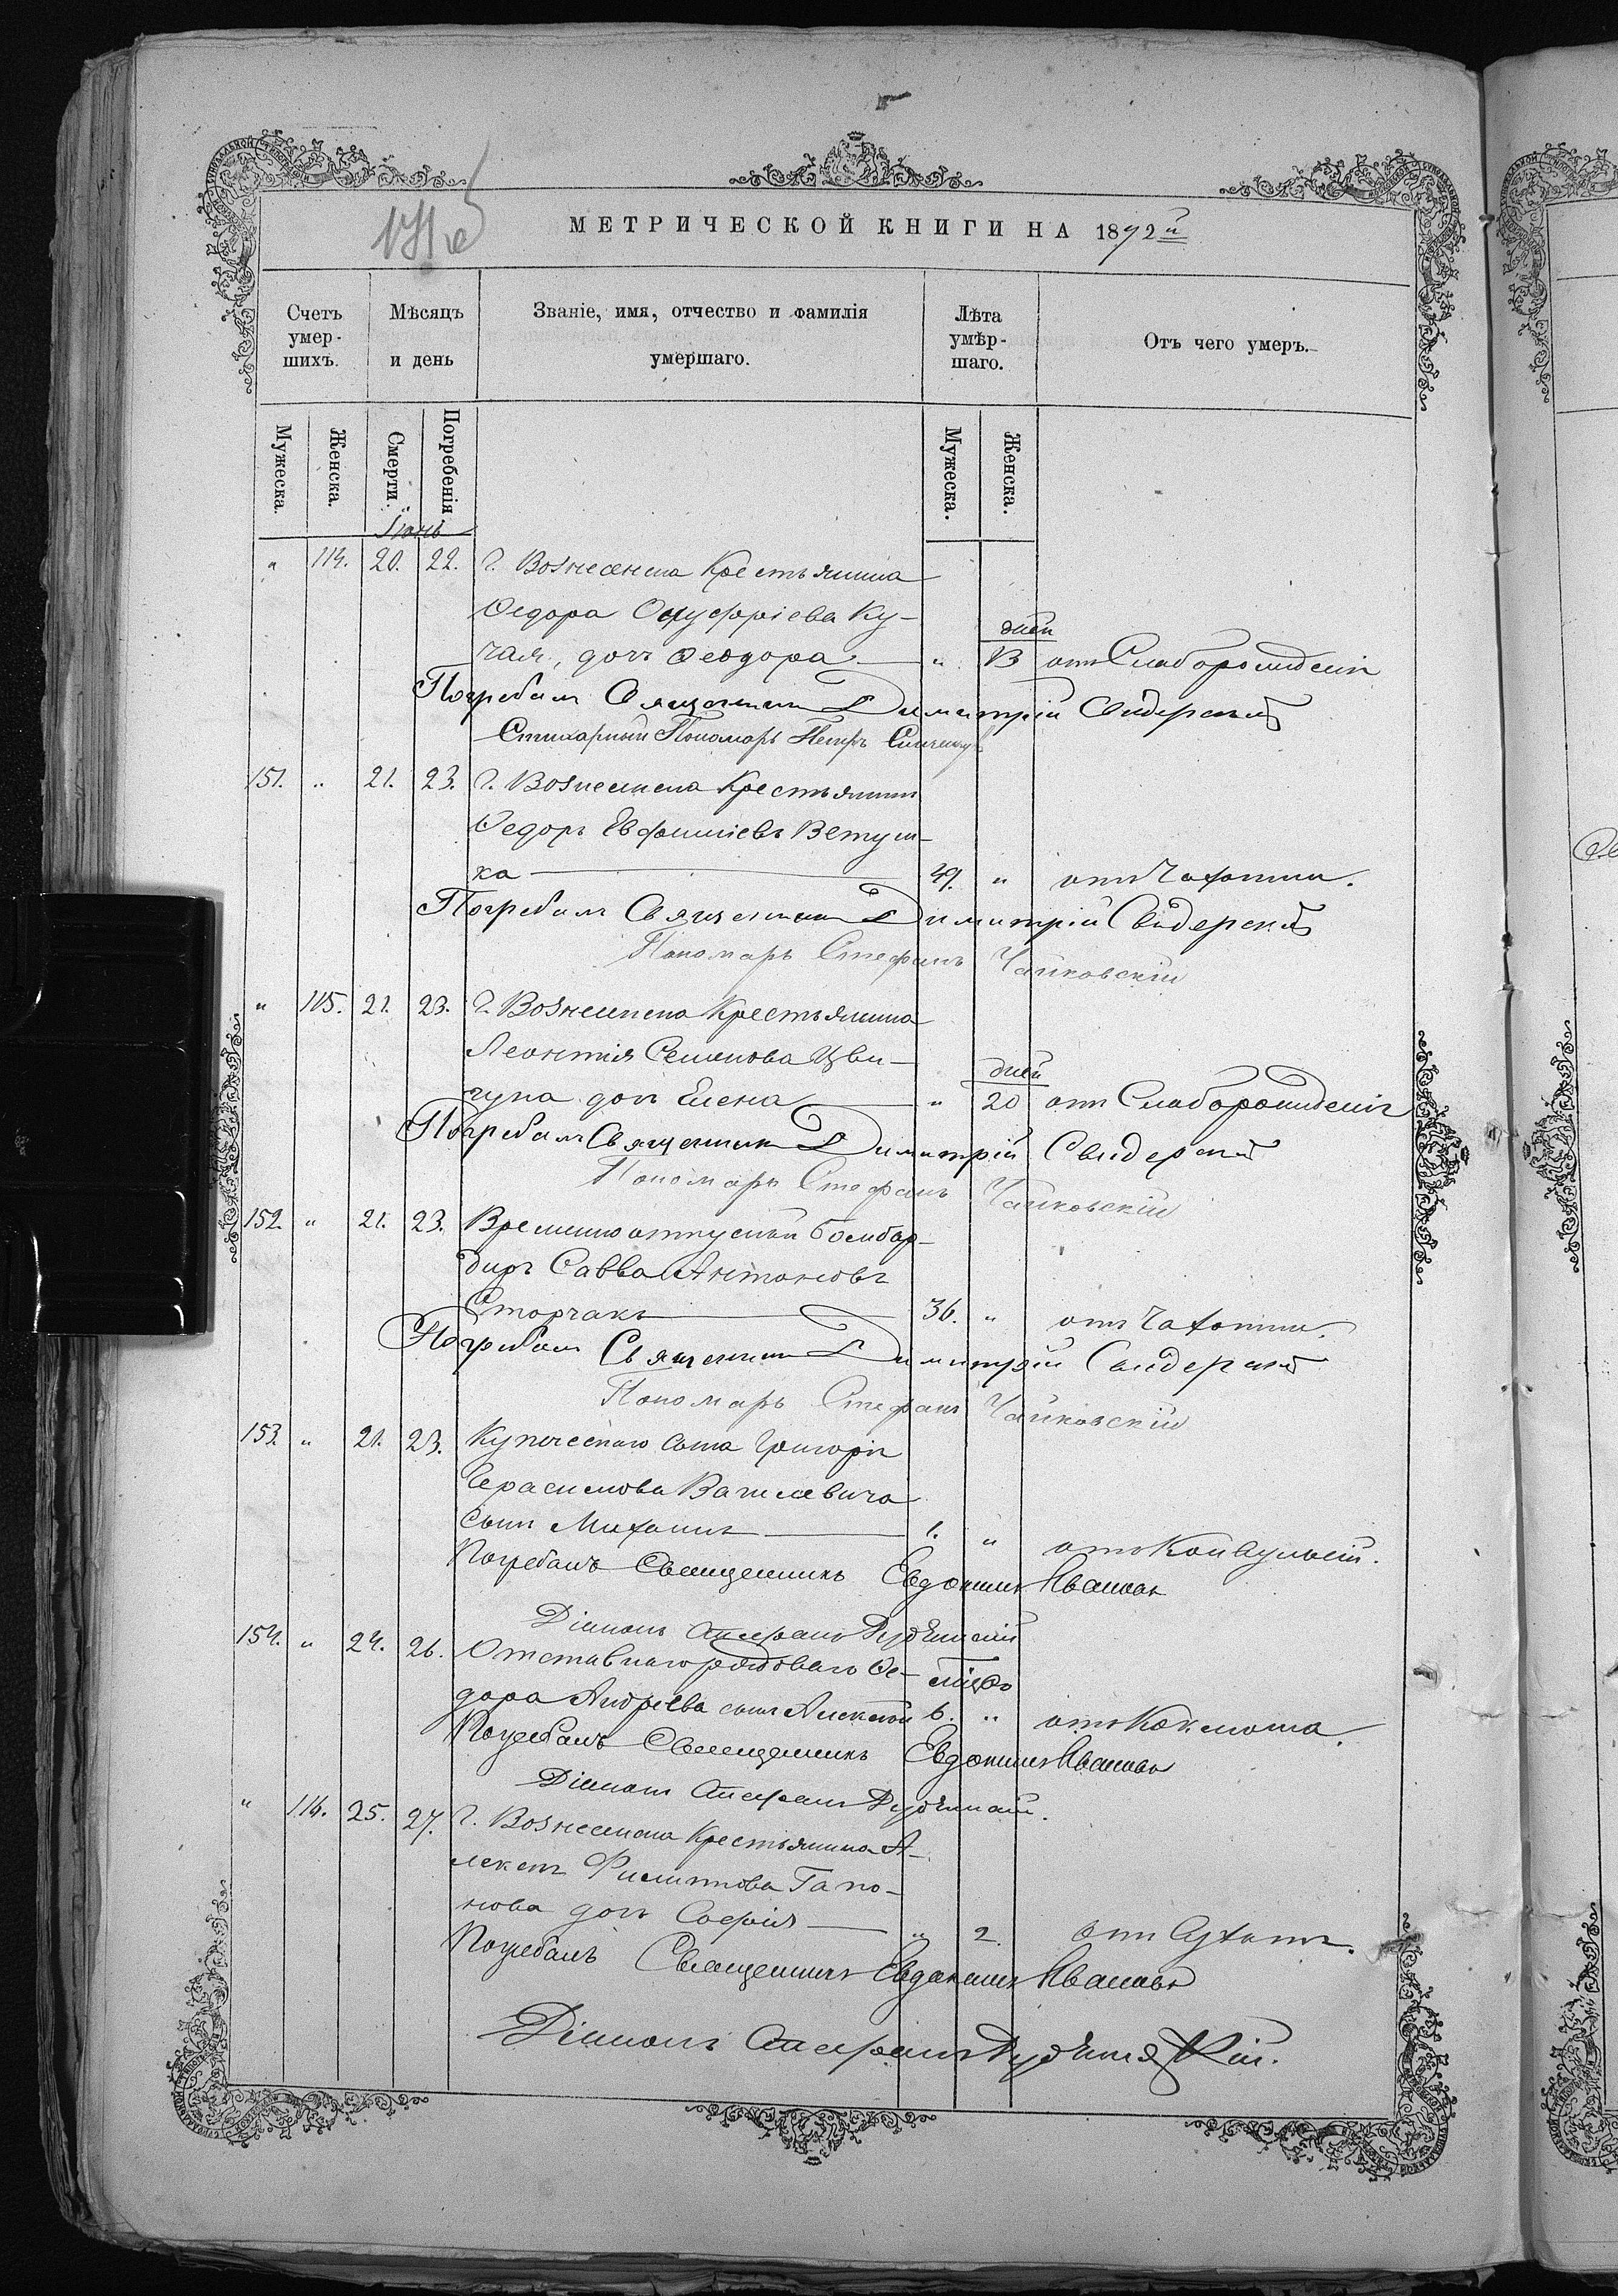 МЕТРИЧЕСКОЙ КНИГИ НА 1872й
Счетъ умер-шихъ.
Мѣсяцъ и день
Званіе, имя, отчество и фамилія умершаго.
Лѣта умѣр-шаго.
Отъ чего умеръ.
Мужеска. Женска. Смерти. Погребенія. Мужеска. Женска.
Іюнь
" 114. 20. 22. г. Вознесенска Крестьянина
Ѳедора Онуфріева Ку-
чая, дочь Ѳеодора " дней 13 отъ Слаборожденія
Погребалъ Священникъ Димитрій Свидерскій
Стихарный Пономарь Петръ
151. " 21. 23. г. Вознесенска Крестьянинъ
Ѳедоръ Евфиміевъ Ветуш-
ка 49. " отъ Чахотки.
Погребалъ Священникъ Димитрій Свидерскій
Пономарь Стефанъ Чайковскій
" 115. 21. 23. г. Вознесенска Крестьянина
Леонтія Семенова Цви-
гуна дочь Елена " дней 20 отъ Слаборожденія
Погребалъ Священникъ Димитрій Свидерскій
Пономарь Стефанъ Чайковскій
152. " 21. 23. Временноотпускной бомбар-
диръ Савва Антоновъ
Сторчакъ 36. " отъ Чахотки.
Погребалъ Священникъ Димитрій Свидерскій
Пономарь Стефанъ Чайковскій
153. " 21. 23. Купеческаго сына Григорія
Герасимова Василевича
сынъ Михаилъ 1. " отъ Конвульсій.
Погребалъ Священникъ Евдокимъ Ивановъ
Діаконъ Стефанъ
154. " 24. 26. Отставнаго рядоваго Ѳе-
дора Андреева сынъ Алексѣй 6. " отъ Коклюша.
Погребалъ Священникъ Евдокимъ Ивановъ
Діаконъ Стефанъ
" 114. 25. 27. г. Вознесенска Крестьянина А-
лексѣя Филиппова Гапо-
нова дочь Софія " 2. отъ Сухотъ.
Погребалъ Священникъ Евдокимъ Ивановъ
Діаконъ Стефанъ